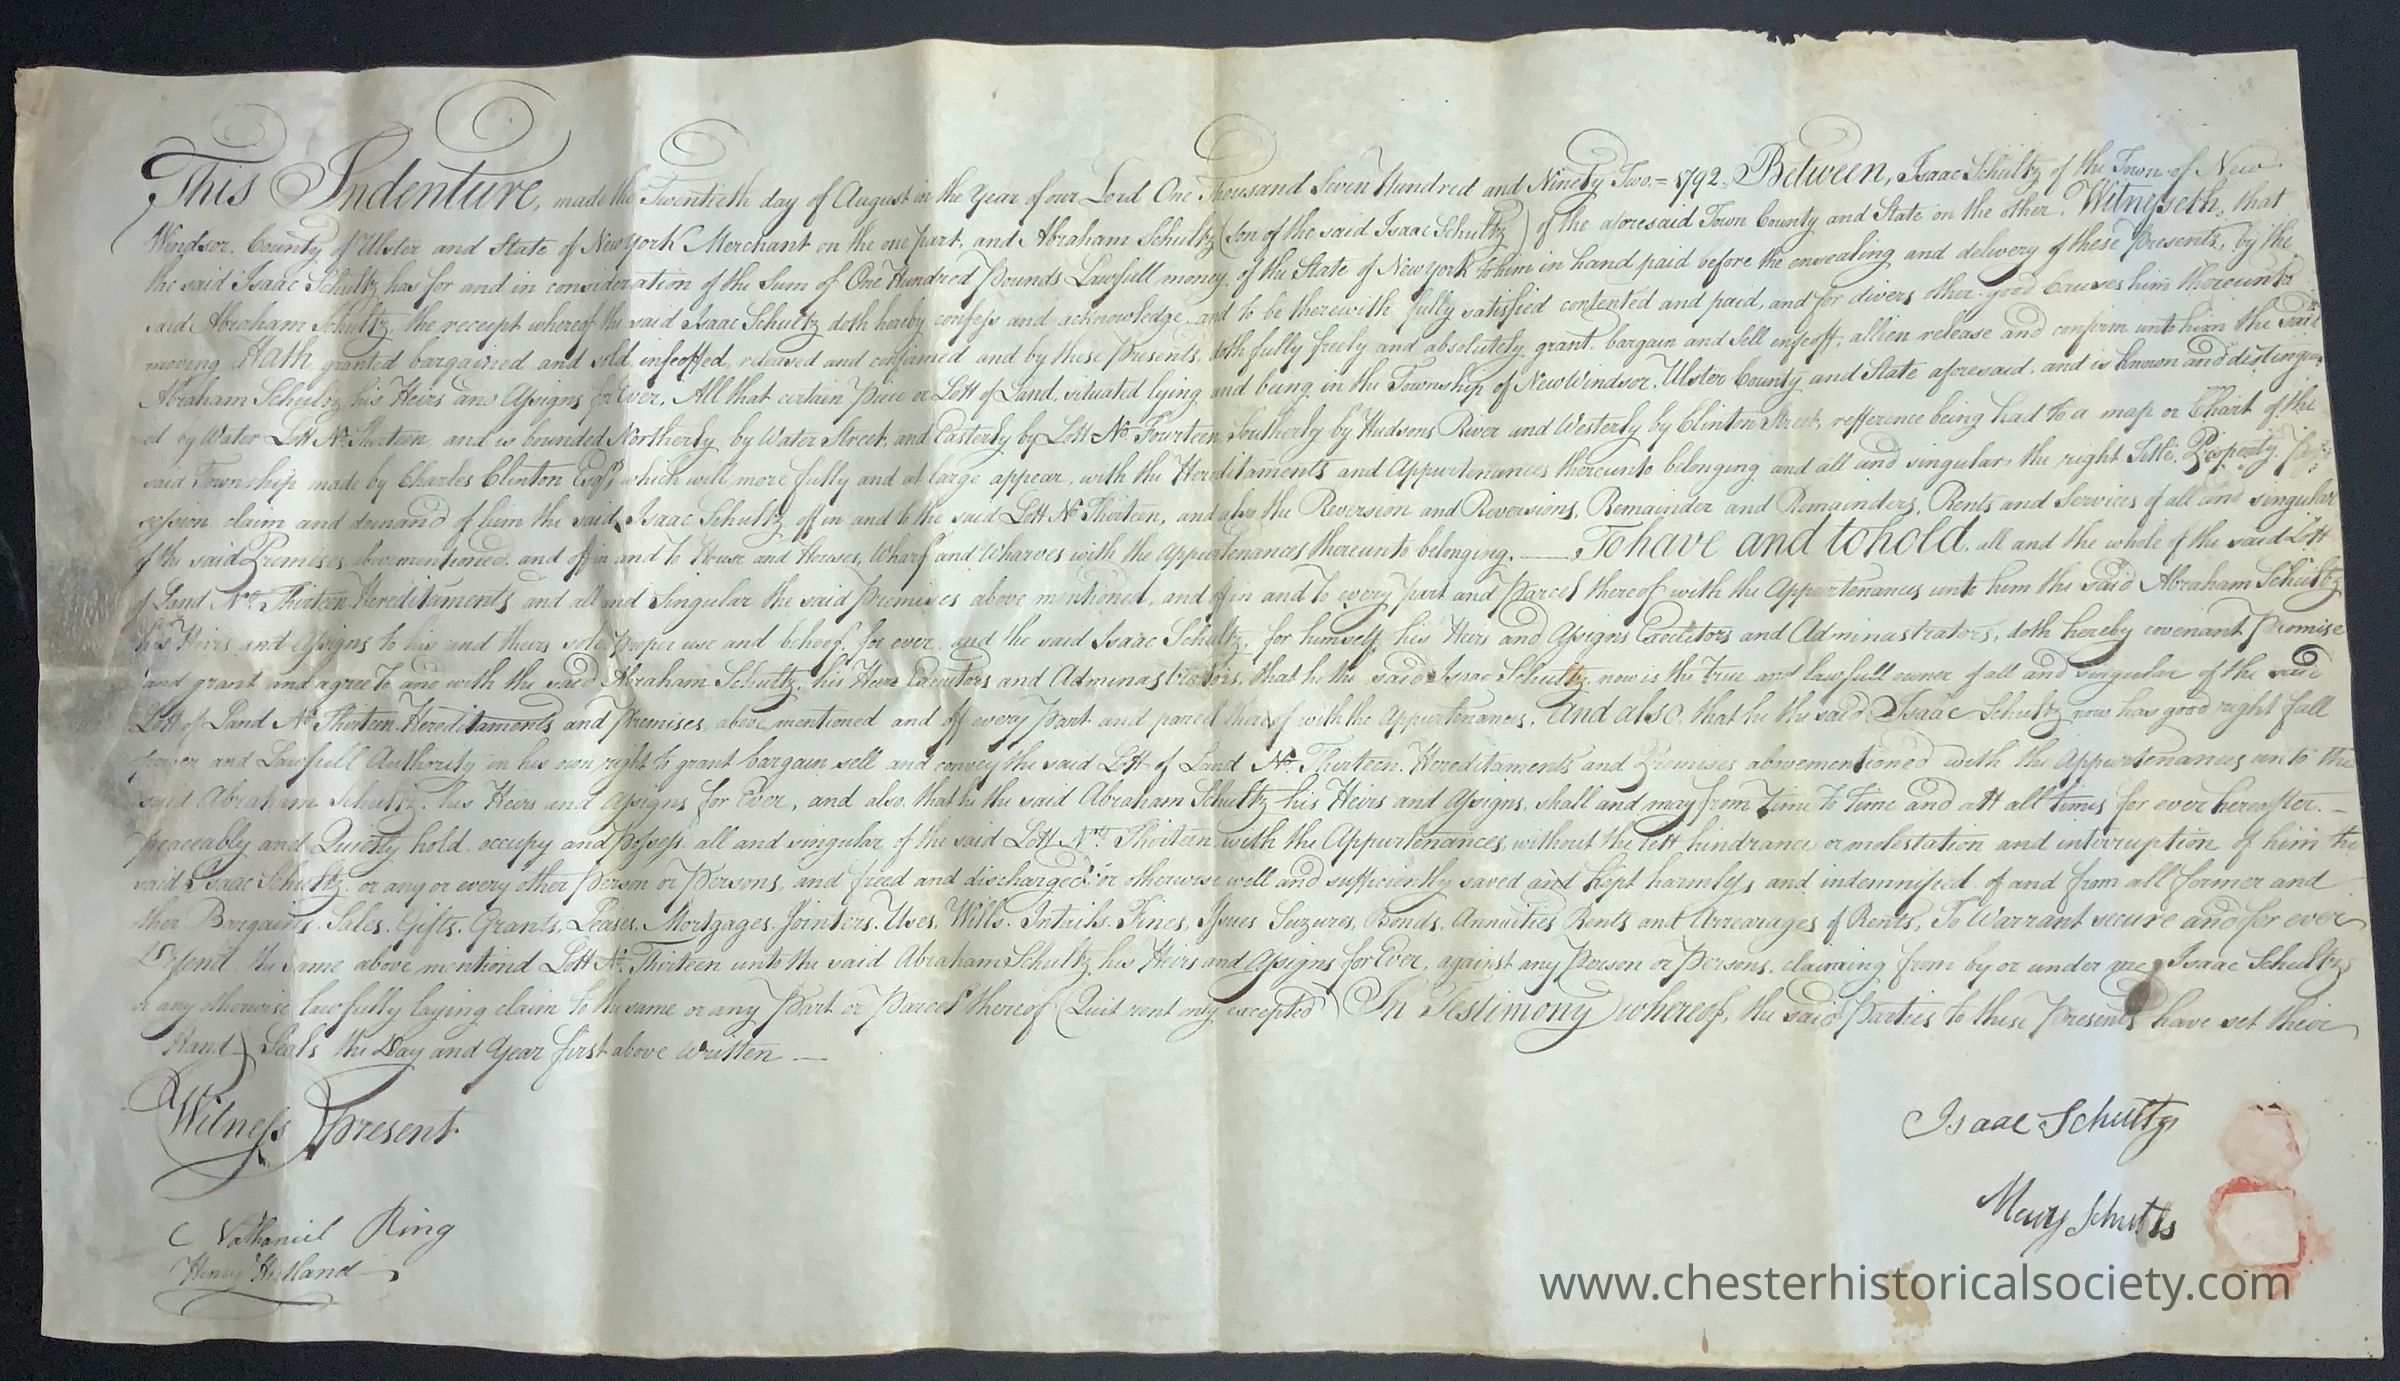 This Indenture, made the Twentieth day of August in the Year of our Lord One Thousand Seven Hundred and Ninety Two.= 1792. Between, Isaac Schultz of the Town of New
Windsor. County of Ulster and State of New york Merchant on the one part, and Abraham Schultz (Son of the said Isaac Schultz) of the aforesaid Town County and State on the other. Witnesseth, that
the said Isaac Schultz has for and in consideration of the Sum of One Hundred Pounds Lawfull money, of the State of New york to him in hand paid before the ensealing and delivery of these Presents, by the
said Abraham Schultz, the receipt whereof the said Isaac Schultz doth hereby confess and acknowledge, and to be therewith fully satisfied contented and paid, and for divers other good Causes him thereunto
moving, Hath granted bargained and sold, infeoffed, released and confirmed and by these Presents, doth fully freely and absolutely, grant, bargain and Sell enfeoff, allien release and confirm unto him the said
Abraham Schultz his Heirs and Assigns for Ever, All that certain Piece or Lott of Land, situated lying and being in the Township of New Windsor, Ulster County and State aforesaid, and is known and distinguish
ed by Water Lott No. Thirteen, and is bounded Northerly by Water Street, and Easterly by Lott No. Fourteen, Southerly by Hudsons River and Westerly by Clinton Street, refference being had to a map or Chart of the
said Township made by Charles Clinton Esqr, which will more fully and at large appear, with the Hereditaments and Appurtenances thereunto belonging, and all and singular, the right Title, Property, Pos
session, claim and demand of him the said, Isaac Schultz, off in and to the said Lott No. Thirteen, and also the Reversion and Reversions, Remainder and Remainders, Rents and Services of all and singular
of the said Premises, abovementioned, and off in and to House and Houses, Wharf and Wharves with the Appurtenances thereunto belonging. — To have and to hold, all and the whole of the said Lott
of Land No. Thirteen Hereditaments and all and Singular the said Premises above mentioned, and off in and to every part and Parcel thereof with the Appurtenances unto him the said Abraham Schultz
his Heirs and Assigns to his and theirs sole proper use and behoof for ever, and the said Isaac Schultz, for himself, his Heirs and Assigns Executors and Adminastrators, doth hereby covenant Promise
and grant and agree to and with the said Abraham Schultz, his Heirs Executors and Adminastrators, that he the said Isaac Schultz, now is the true and lawfull owner of all and singular of the said
Lott of Land No. Thirteen, Hereditaments and Premises, above mentioned and off every Part and parcel thereof with the Appurtenances, And also, that he the said Isaac Schultz now has good right full
power and Lawfull Authority in his own right to grant bargain sell and convey the said Lott of Land No. Thirteen. Hereditaments and Premises abovementioned with the Appurtenances unto the
said Abraham Schultz. his Heirs and Assigns for Ever, and also, that he the said Abraham Schultz his Heirs and Assigns, shall and may from Time to Time and att all times for ever hereafter. –
peaceably and Quietly hold, occupy and possess, all and singular of the said Lott No. Thirteen with the Appurtenances, without the lett hindrance or molestation and interruption of him the
said Isaac Schultz, or any or every other Person or Persons, and freed and discharged, or otherwise well and sufficiently saved and kept harmless and indemnified, of and from all former and
other Bargains, Sales, Gifts, Grants, Leases, Mortgages, Jointers, Uses, Wills, Intails, Fines, Issues Seizures, Bonds, Annuities Rents and Arrearages of Rents, To Warrant secure and for ever
Defend, the same above mentiond Lott No. Thirteen unto the said Abraham Schultz his Heirs and Assigns for Ever, against any Person or Persons, claiming from by or under me Isaac Schultz
or any otherwise lawfully laying claim to the same or any Part or Parcel thereof (Quit rent only excepted) In Testimony whereof, the said Parties to these Presents have set their
Hand, Seals the Day and Year first above written —
Witness Present
Isaac Schultz
Mary Schults
Nathaniel Ring
Henry
www.chesterhistoricalsociety.com